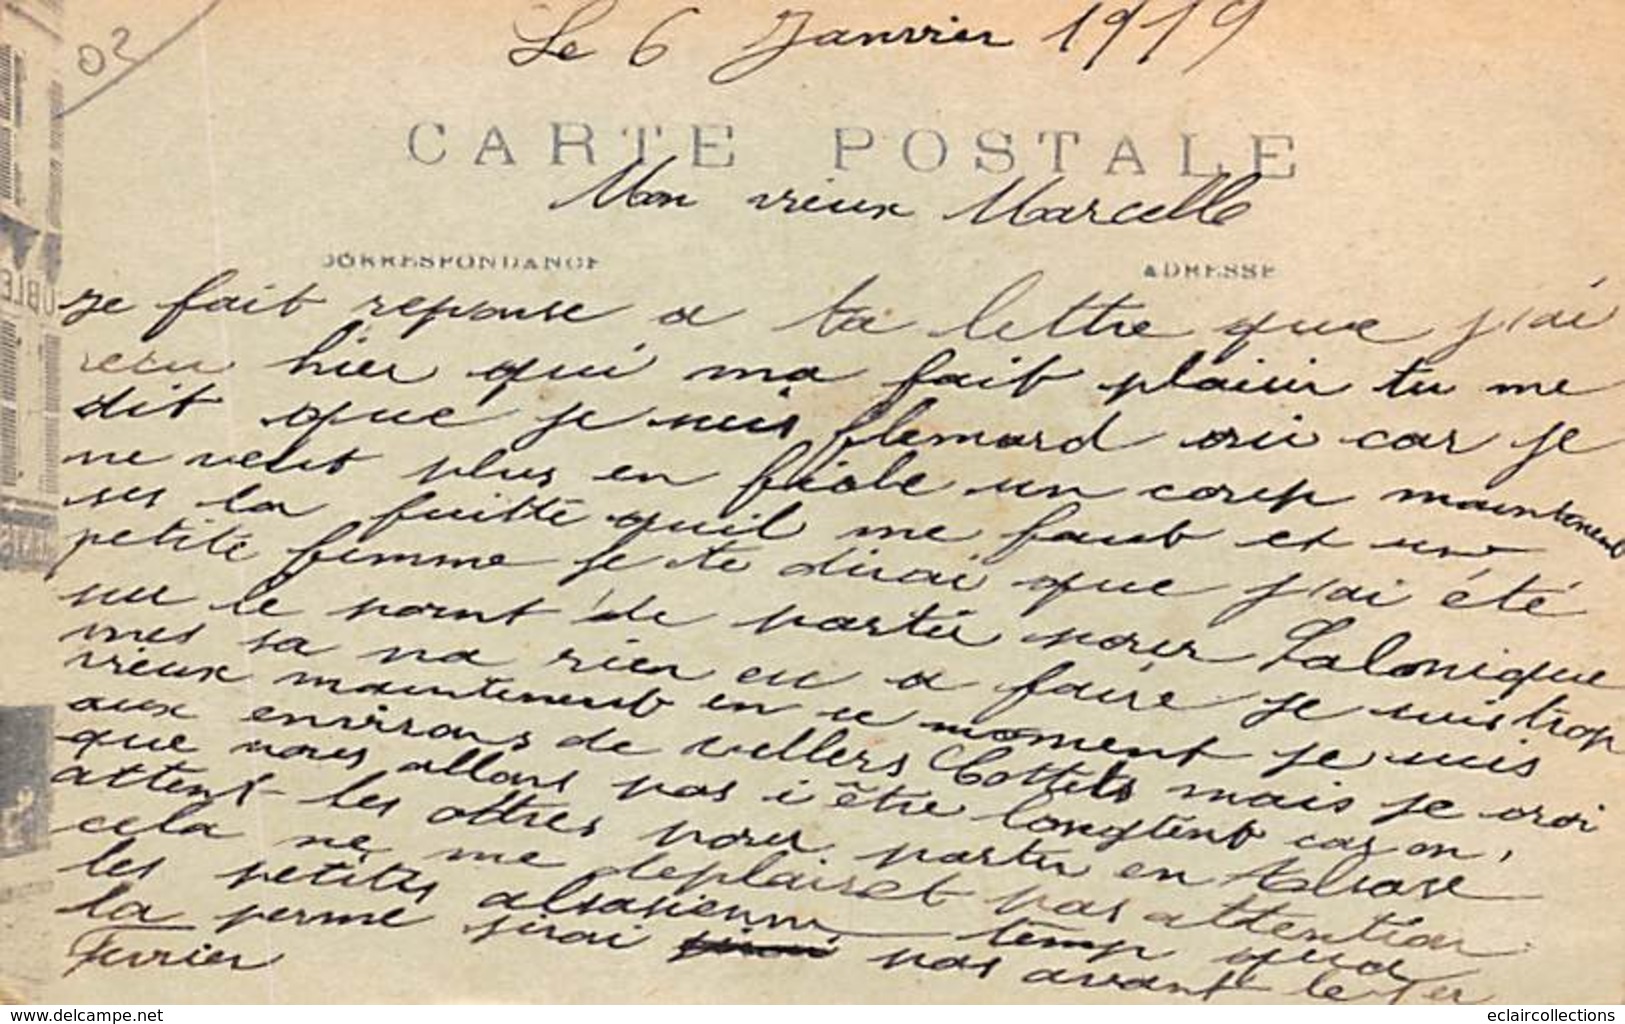 02
Le 6 Janvier 1919
CARTE POSTALE
Mon vieux Marcelle
CORRESPONDANCE
ADRESSE
Je fait reponse a ta lettre que j'ai
recu hier qui ma fait plaisir tu me
dit que je suis flemard oui car je
ne veut plus en fiole un coup maintenent
ses la fuitte quil me faut et un
petite femme je te dirai que j'ai été
sur le point de partir pour Salonique
mes sa na rien eu a faire je suis trop
vieux maintenent en ce moment je suis
aux environs de villers Cottets mais je croi
que nous allons pas i être longtent car on
attent les ottres pour partir en Alsase
cela ne me deplairet pas attention
les petites alsasienne temp qua
la perme jirai pas avant le 1er
Fevrier
www.delcampe.net
eclaircollections